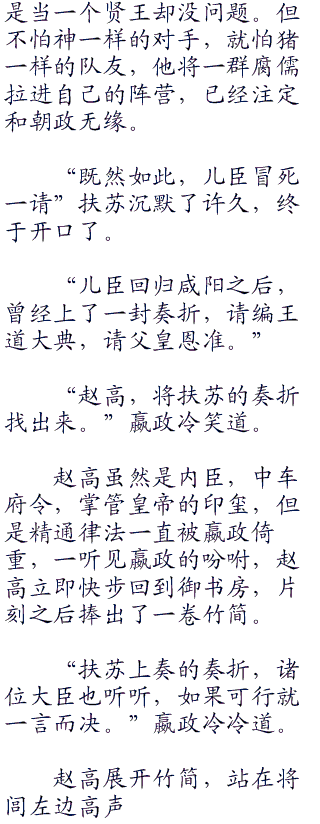 是当一个贤王却没问题。但
不怕神一样的对手，就怕猪
一样的队友，他将一群腐儒
拉进自己的阵营，已经注定
和朝政无缘。
“既然如此，儿臣冒死
一请”扶苏沉默了许久，终
于开口了。
“儿臣回归咸阳之后，
曾经上了一封奏折，请编王
道大典，请父皇恩准。”
“赵高，将扶苏的奏折
找出来。”嬴政冷笑道。
赵高虽然是内臣，中车
府令，掌管皇帝的印玺，但
是精通律法一直被嬴政倚
重，一听见嬴政的吩咐，赵
高立即快步回到御书房，片
刻之后捧出了一卷竹简。
“扶苏上奏的奏折，诸
位大臣也听听，如果可行就
一言而决。”嬴政冷冷道。
赵高展开竹简，站在将
闾左边高声